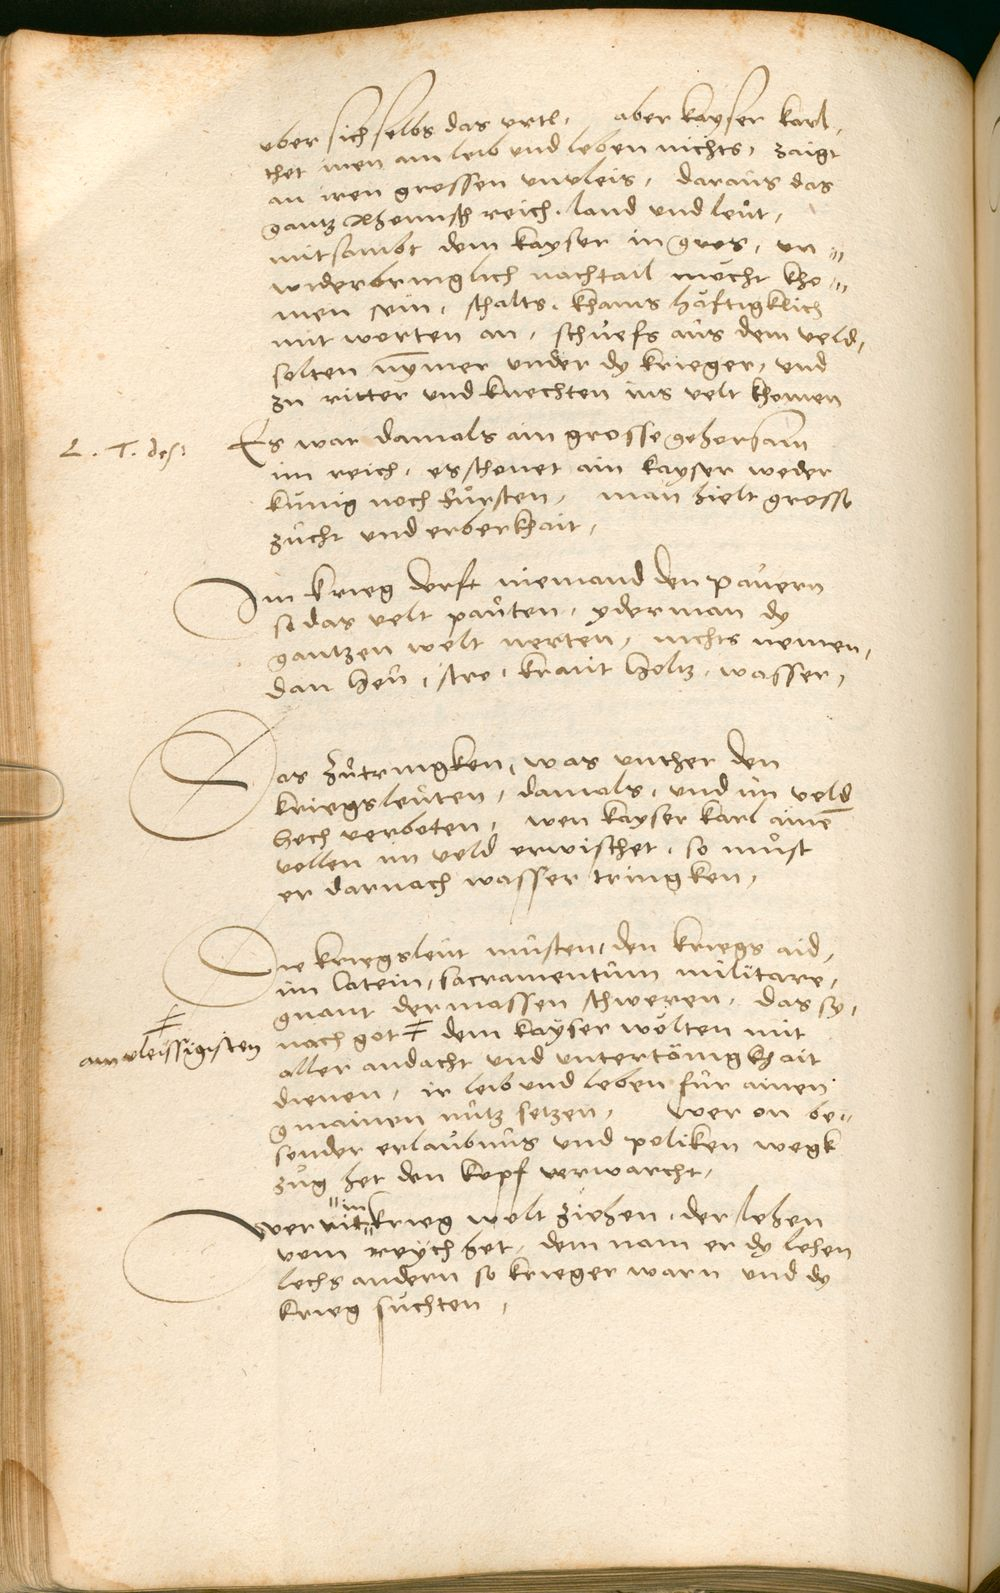 uber sich selbs das urtl, aber kayser karl,
thet inen am leib und leben nichts, zaigt
an iren grossen unvleis, daraus das
gantz Rhemisch reich, land und leut,
mitsambt dem kayser in gros, un„
widerbringlich nachtail mecht kho„
men sein, schalts, khams häftigklich
mit worten an, schuefs aus dem veld,
solten nymer under dy krieger, und
zu ritter und knechten ins velt khomen
L. T. des: Es war damals ain grosse gehorsam
im reich, es schonet ain kayser weder
kunig noch fürsten, man hielt grosse
zucht und erberkhait,
Im krieg derft niemand den paüern
so das velt pauten, yderman dy
gantzen welt nerten, nichts nemen,
dan heu, stro, kraut holtz, wasser,
Das zutringken, was unther den
kriegsleuten, damals, und im veld
hoch verboten, wen kayser karl ainē
vollen im veld erwischet, so muest
er darnach wasser tringken,
Die kriegsleut musten, den kriegs aid,
im latein, sacramentum militare,
gnant dermassen schweren, das sy,
nach got ǂ dem kayser wolten mit
ǂ am vleissigisten
aller andacht und untertänigkhait
dienen, ir leib und leben für ainen
gmainen nutz setzen, Wer on be„
sonder erlaubnus und politen wegk
zug het den kopf verwarcht,
in
Wer nit krieg wolt ziehen, der lehen
vom reych het, dem nam er dy lehen
lechs andern so krieger warn und dy
krieg suchten,